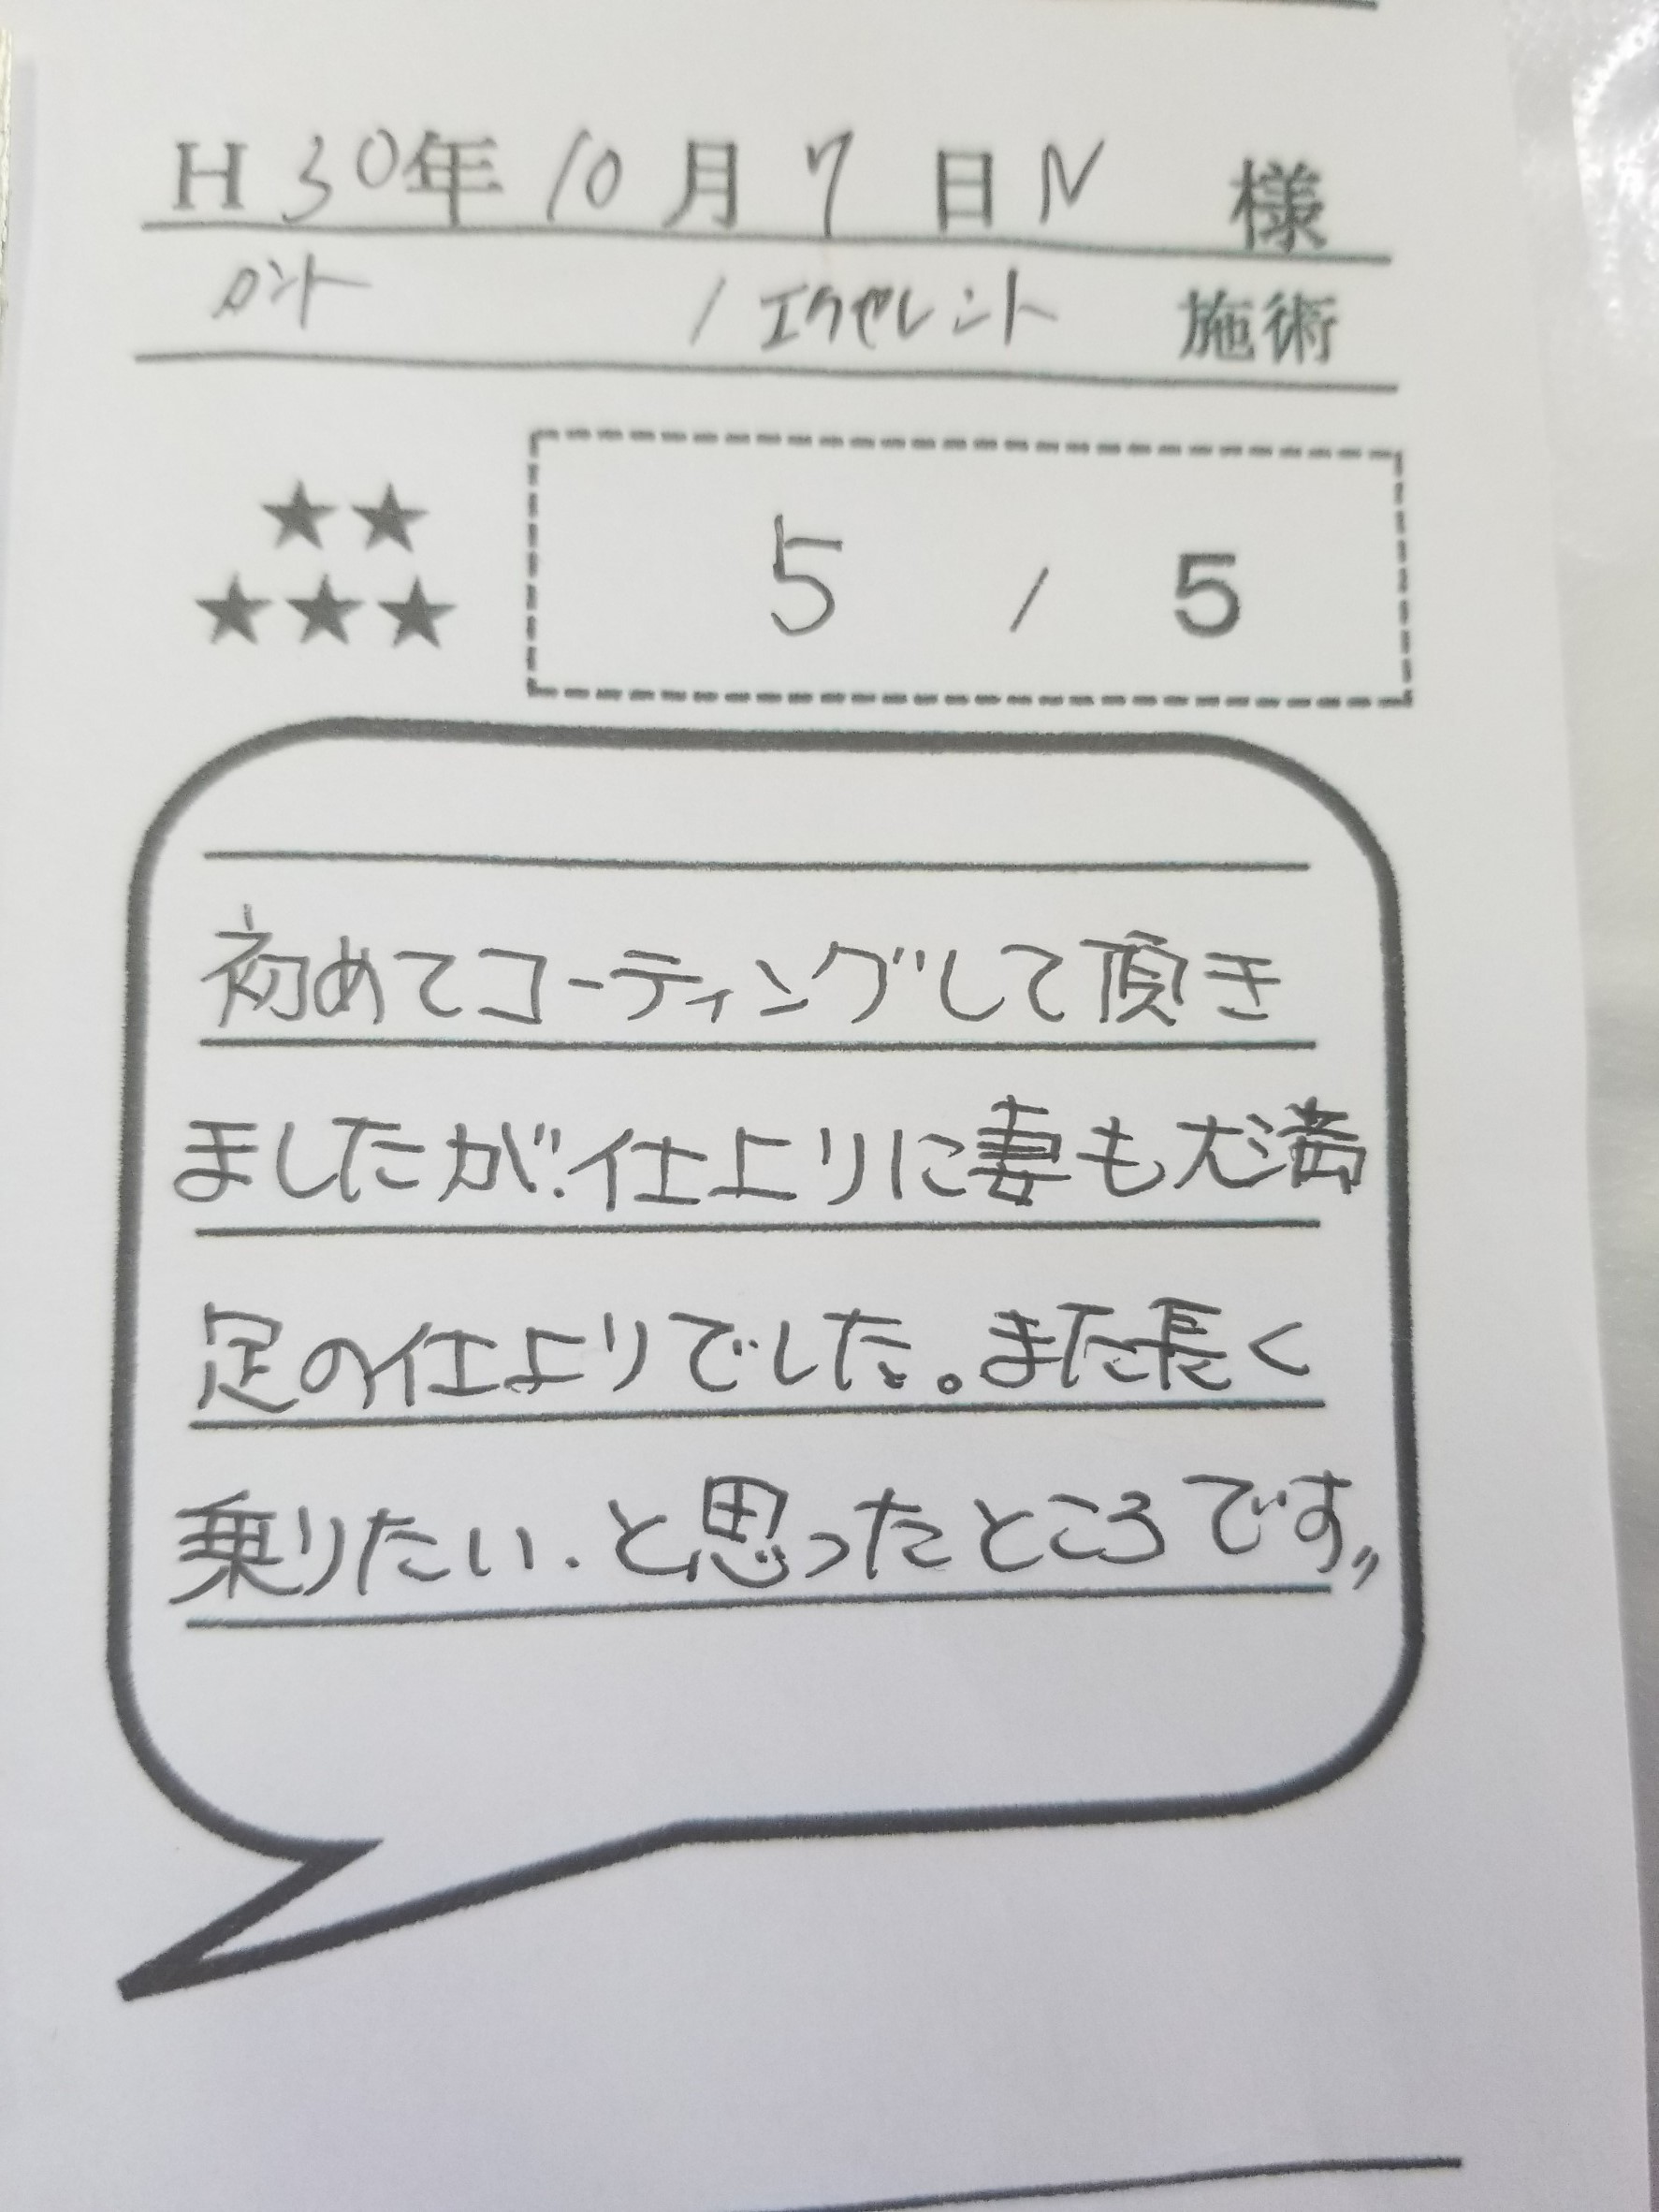 H30年10月7日N 様
タント / エクセレント 施術
★★
★★★
5 / 5
初めてコーティングして頂き
ましたが、仕上りに妻も大満
足の仕上りでした。また長く
乗りたい、と思ったところです〃